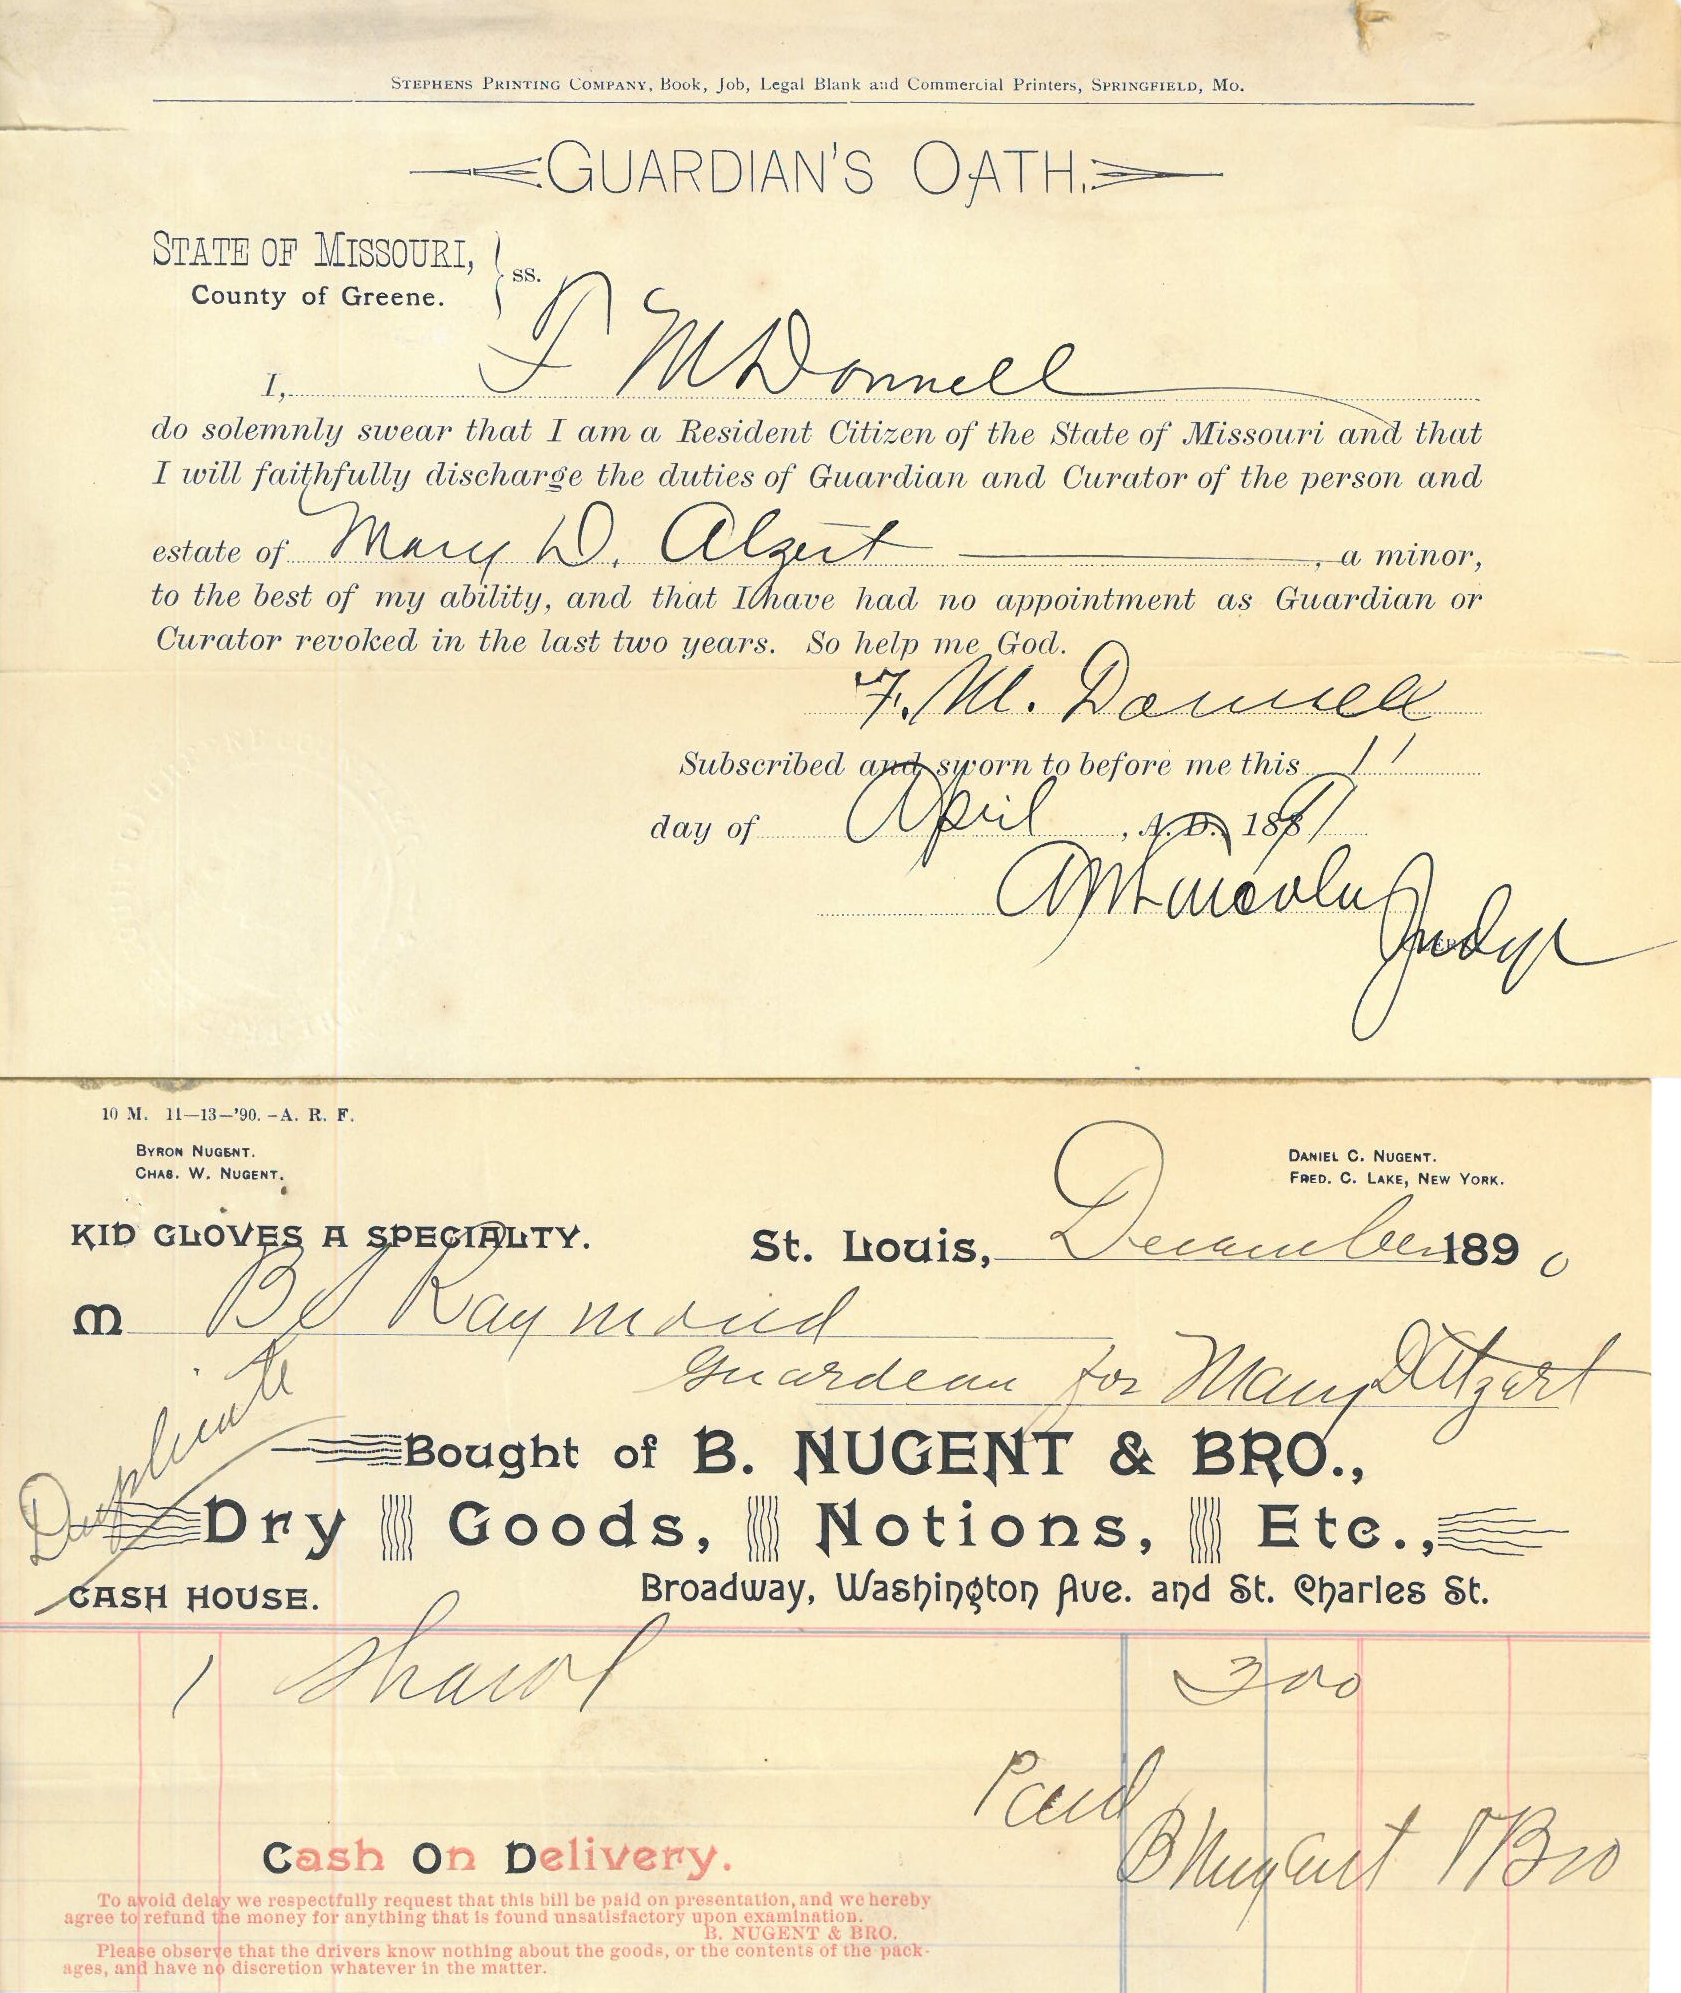 STEPHENS PRINTING COMPANY, Book, Job, Legal Blank and Commercial Printers, SPRINGFIELD, MO.
GUARDIAN'S OATH.
STATE OF MISSOURI, } ss.
County of Greene.
I, F McDonnell
do solemnly swear that I am a Resident Citizen of the State of Missouri and that
I will faithfully discharge the duties of Guardian and Curator of the person and
estate of Mary D. Alzert, a minor,
to the best of my ability, and that I have had no appointment as Guardian or
Curator revoked in the last two years. So help me God.
F. M. Donnell
Subscribed and sworn to before me this 11
day of April, A. D. 1891
Judge
10 M. 11—13—'90. -A. R. F.
BYRON NUGENT.
CHAS. W. NUGENT.
DANIEL C. NUGENT.
FRED. C. LAKE, NEW YORK.
KID GLOVES A SPECIALTY.
St. Louis, December 1890
M Raymond
Guardean for Mary D
Duplicate
Bought of B. NUGENT & BRO.,
Dry Goods, Notions, Etc.,
CASH HOUSE.
Broadway, Washington Ave. and St. Charles St.
1 Shawl 300
Paid
B Nugent & Bro
Cash On Delivery.
To avoid delay we respectfully request that this bill be paid on presentation, and we hereby
agree to refund the money for anything that is found unsatisfactory upon examination.
B. NUGENT & BRO.
Please observe that the drivers know nothing about the goods, or the contents of the pack-
ages, and have no discretion whatever in the matter.